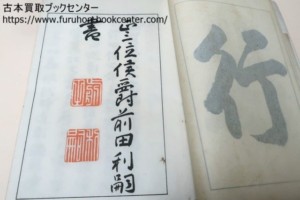 古本買取ブックセンター
https://www.furuhonbookcenter.com/
行
位侯爵前田利嗣
書